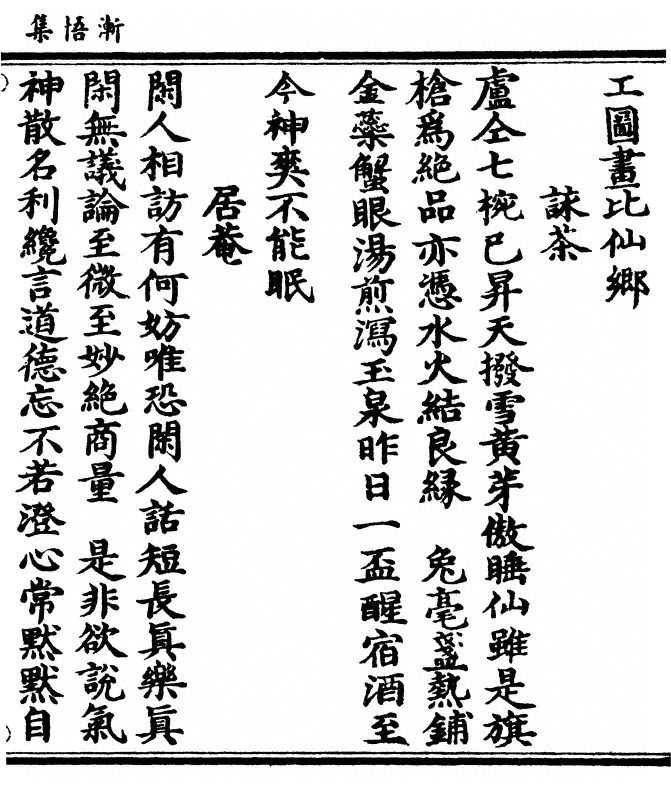 漸悟集
工圖畫比仙鄉
詠茶
盧仝七椀已昇天撥雪黃芽傲睡仙雖是旗
槍爲絶品亦憑水火結良緣　兔毫盞熱鋪
金蘂蟹眼湯煎瀉玉泉昨日一盃醒宿酒至
今神爽不能眠
居菴
閑人相訪有何妨唯恐閑人話短長眞樂眞
閑無議論至微至妙絶商量　是非欲說氣
神散名利纔言道德忘不若澄心常默默自